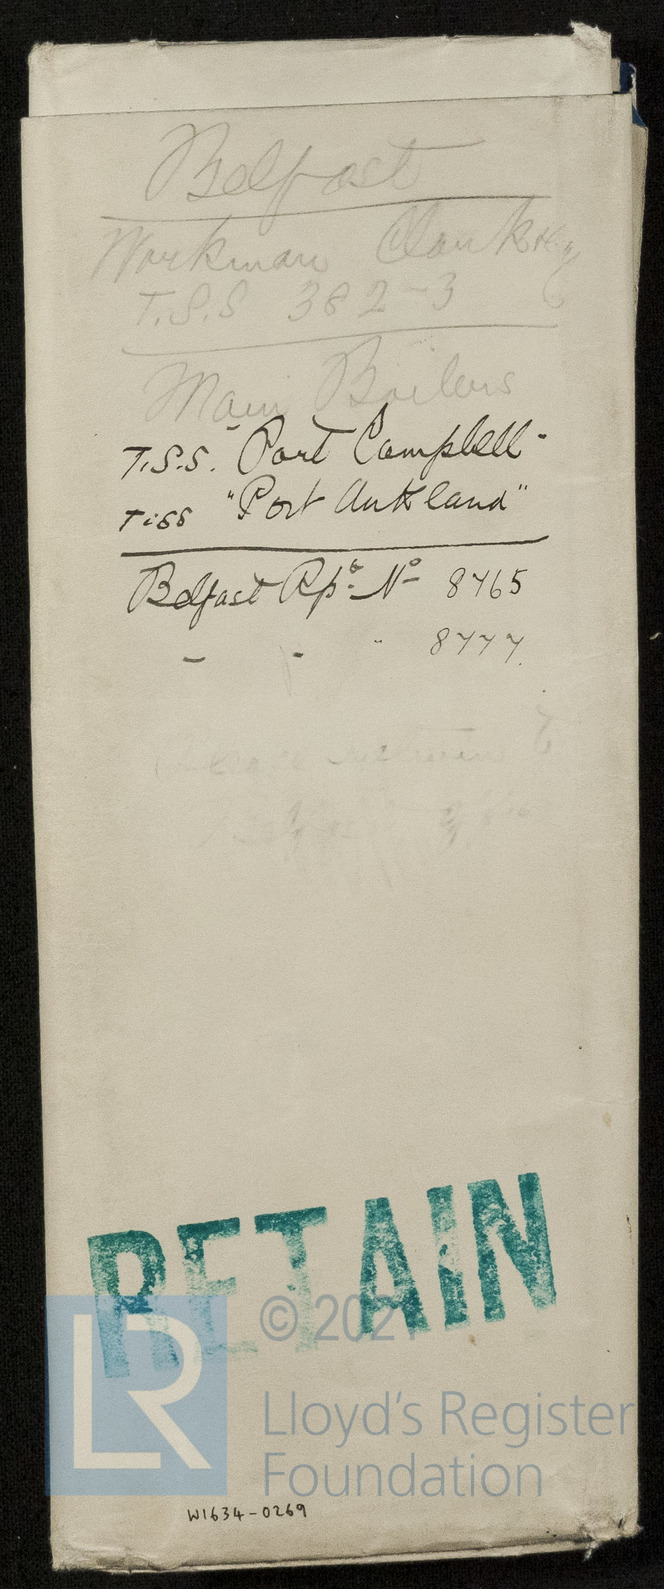 Belfast
Workman Clark & Co
T.S.S 382-3
Main Boilers
T.S.S. "Port Campbell"
T.SS "Port Aukland"
Belfast Rpt. No 8765
" " " 8777
RETAIN
© 2021
LR
Lloyd's Register
Foundation
W1634-0269